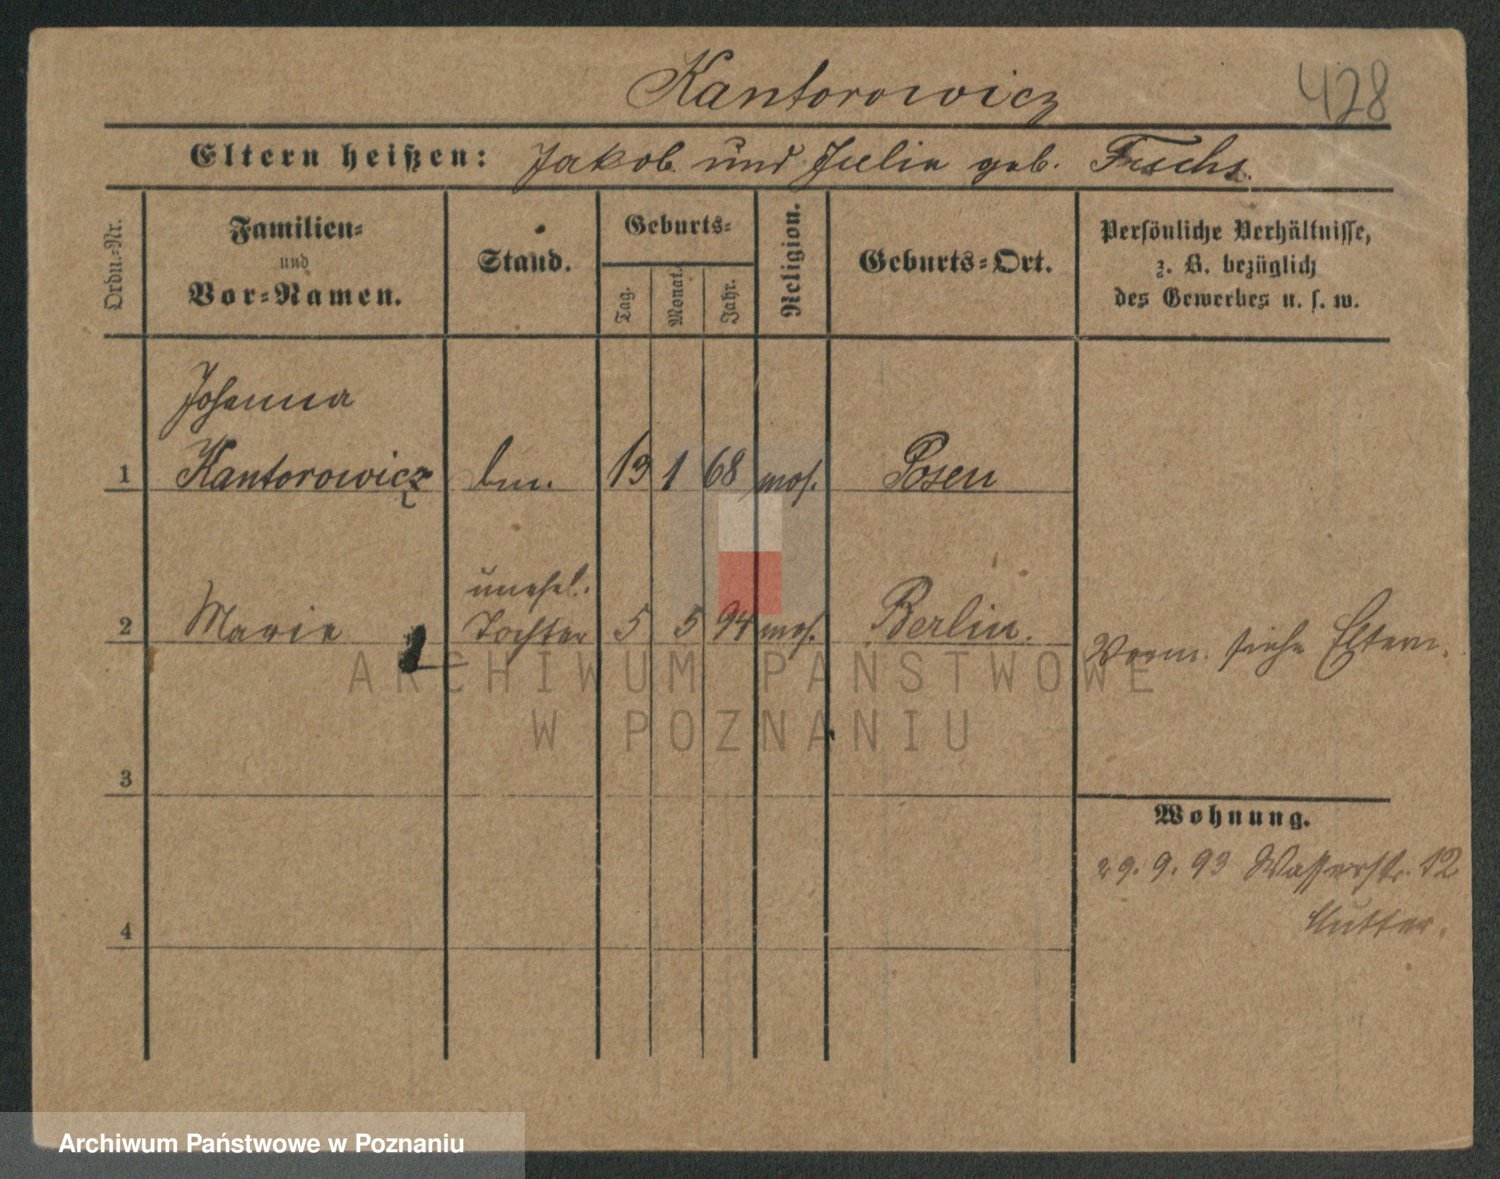 Kantorowicz
428
Eltern heißen: Jakob und Julie geb. Fuchs.
Ordn.=Nr.
Familien=
und
Vor=Namen.
Stand.
Geburts=
Tag.
Monat.
Jahr.
Religion.
Geburts=Ort.
Persönliche Verhältnisse,
z. B. bezüglich
des Gewerbes u. s. w.
Johanna
1 Kantorowicz 13 1 68 mos. Posen
unehel.
2 Marie Tochter 5 5 94 mos. Berlin.
siehe Eltern.
3
Wohnung.
29. 9. 93 Wasserstr. 12
Mutter.
4
ARCHIWUM PAŃSTWOWE
W POZNANIU
Archiwum Państwowe w Poznaniu